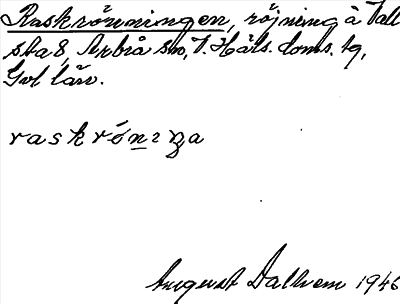 Raskrönningen, röjning å Vall
sta 8, Arbrå sn, V. Häls. doms. tg,
Gvl län.
raskrö́nıŋa
August Dalhem 1946